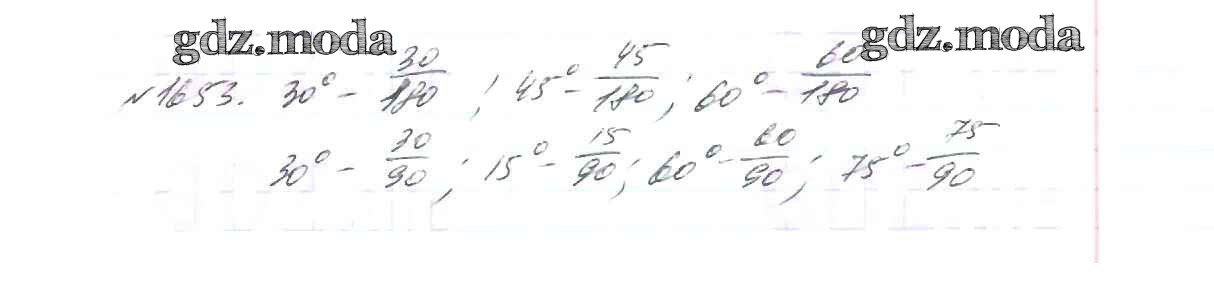 gdz.moda gdz.moda
№1653. 30° - 30/180 ; 45° - 45/180 ; 60° - 60/180
30° - 30/90 ; 15° - 15/90 ; 60° - 60/90 ; 75° - 75/90